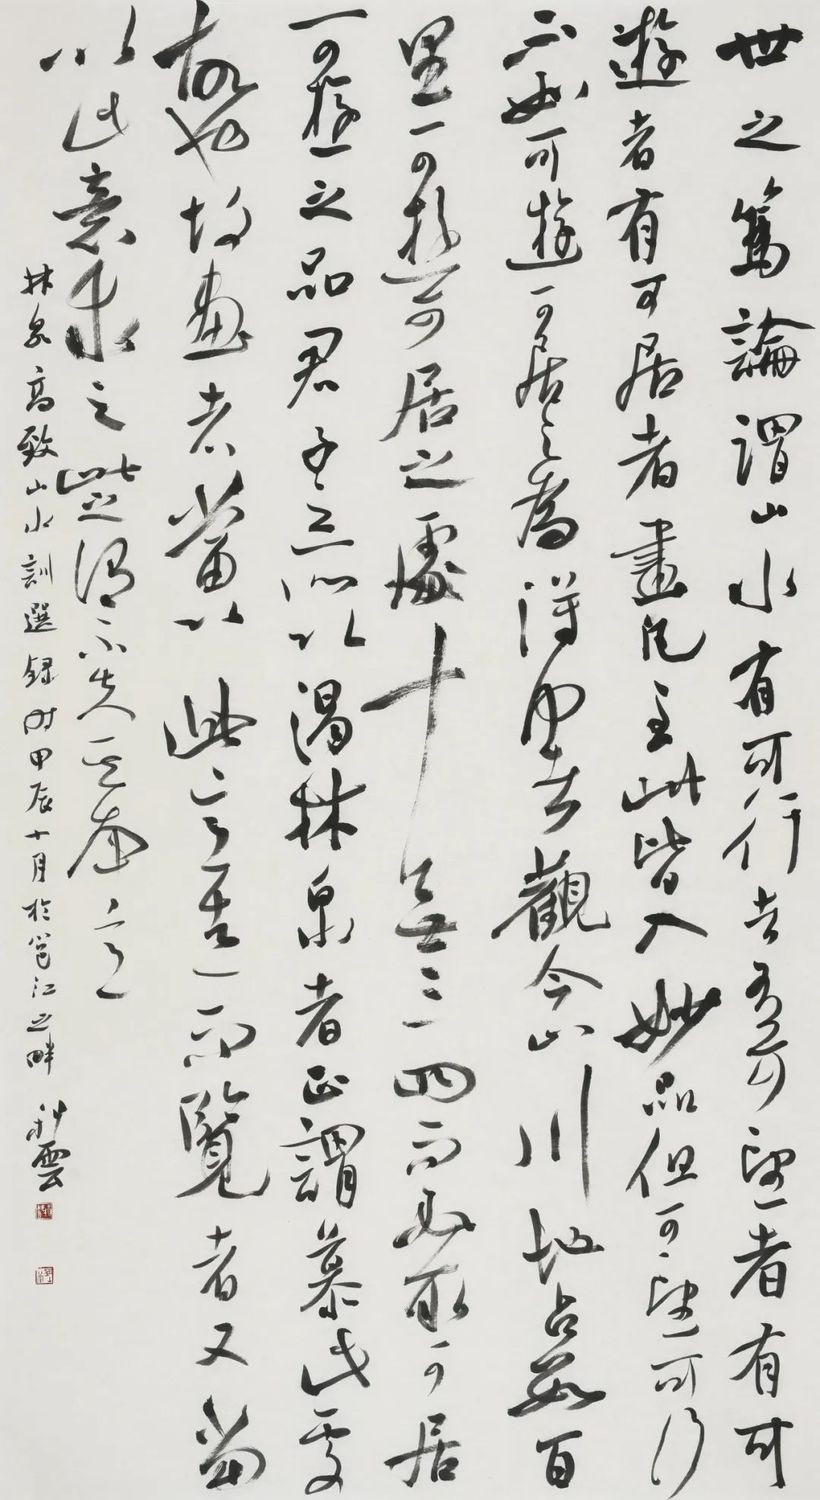 世之篤論謂山水有可行者有可望者有可
遊者有可居者畫凡至此皆入妙品但可望可行
不如可遊可居之為得何者觀今山川地占數百
里可遊可居之處十無三四而必取可居
可遊之品君子之所以渴林泉者正謂慕此處
故也故畫者當以此意造而覽者又當
以此意求之此之謂不失其本意
林泉高致山水訓選錄時甲辰十月於邕江之畔 雲